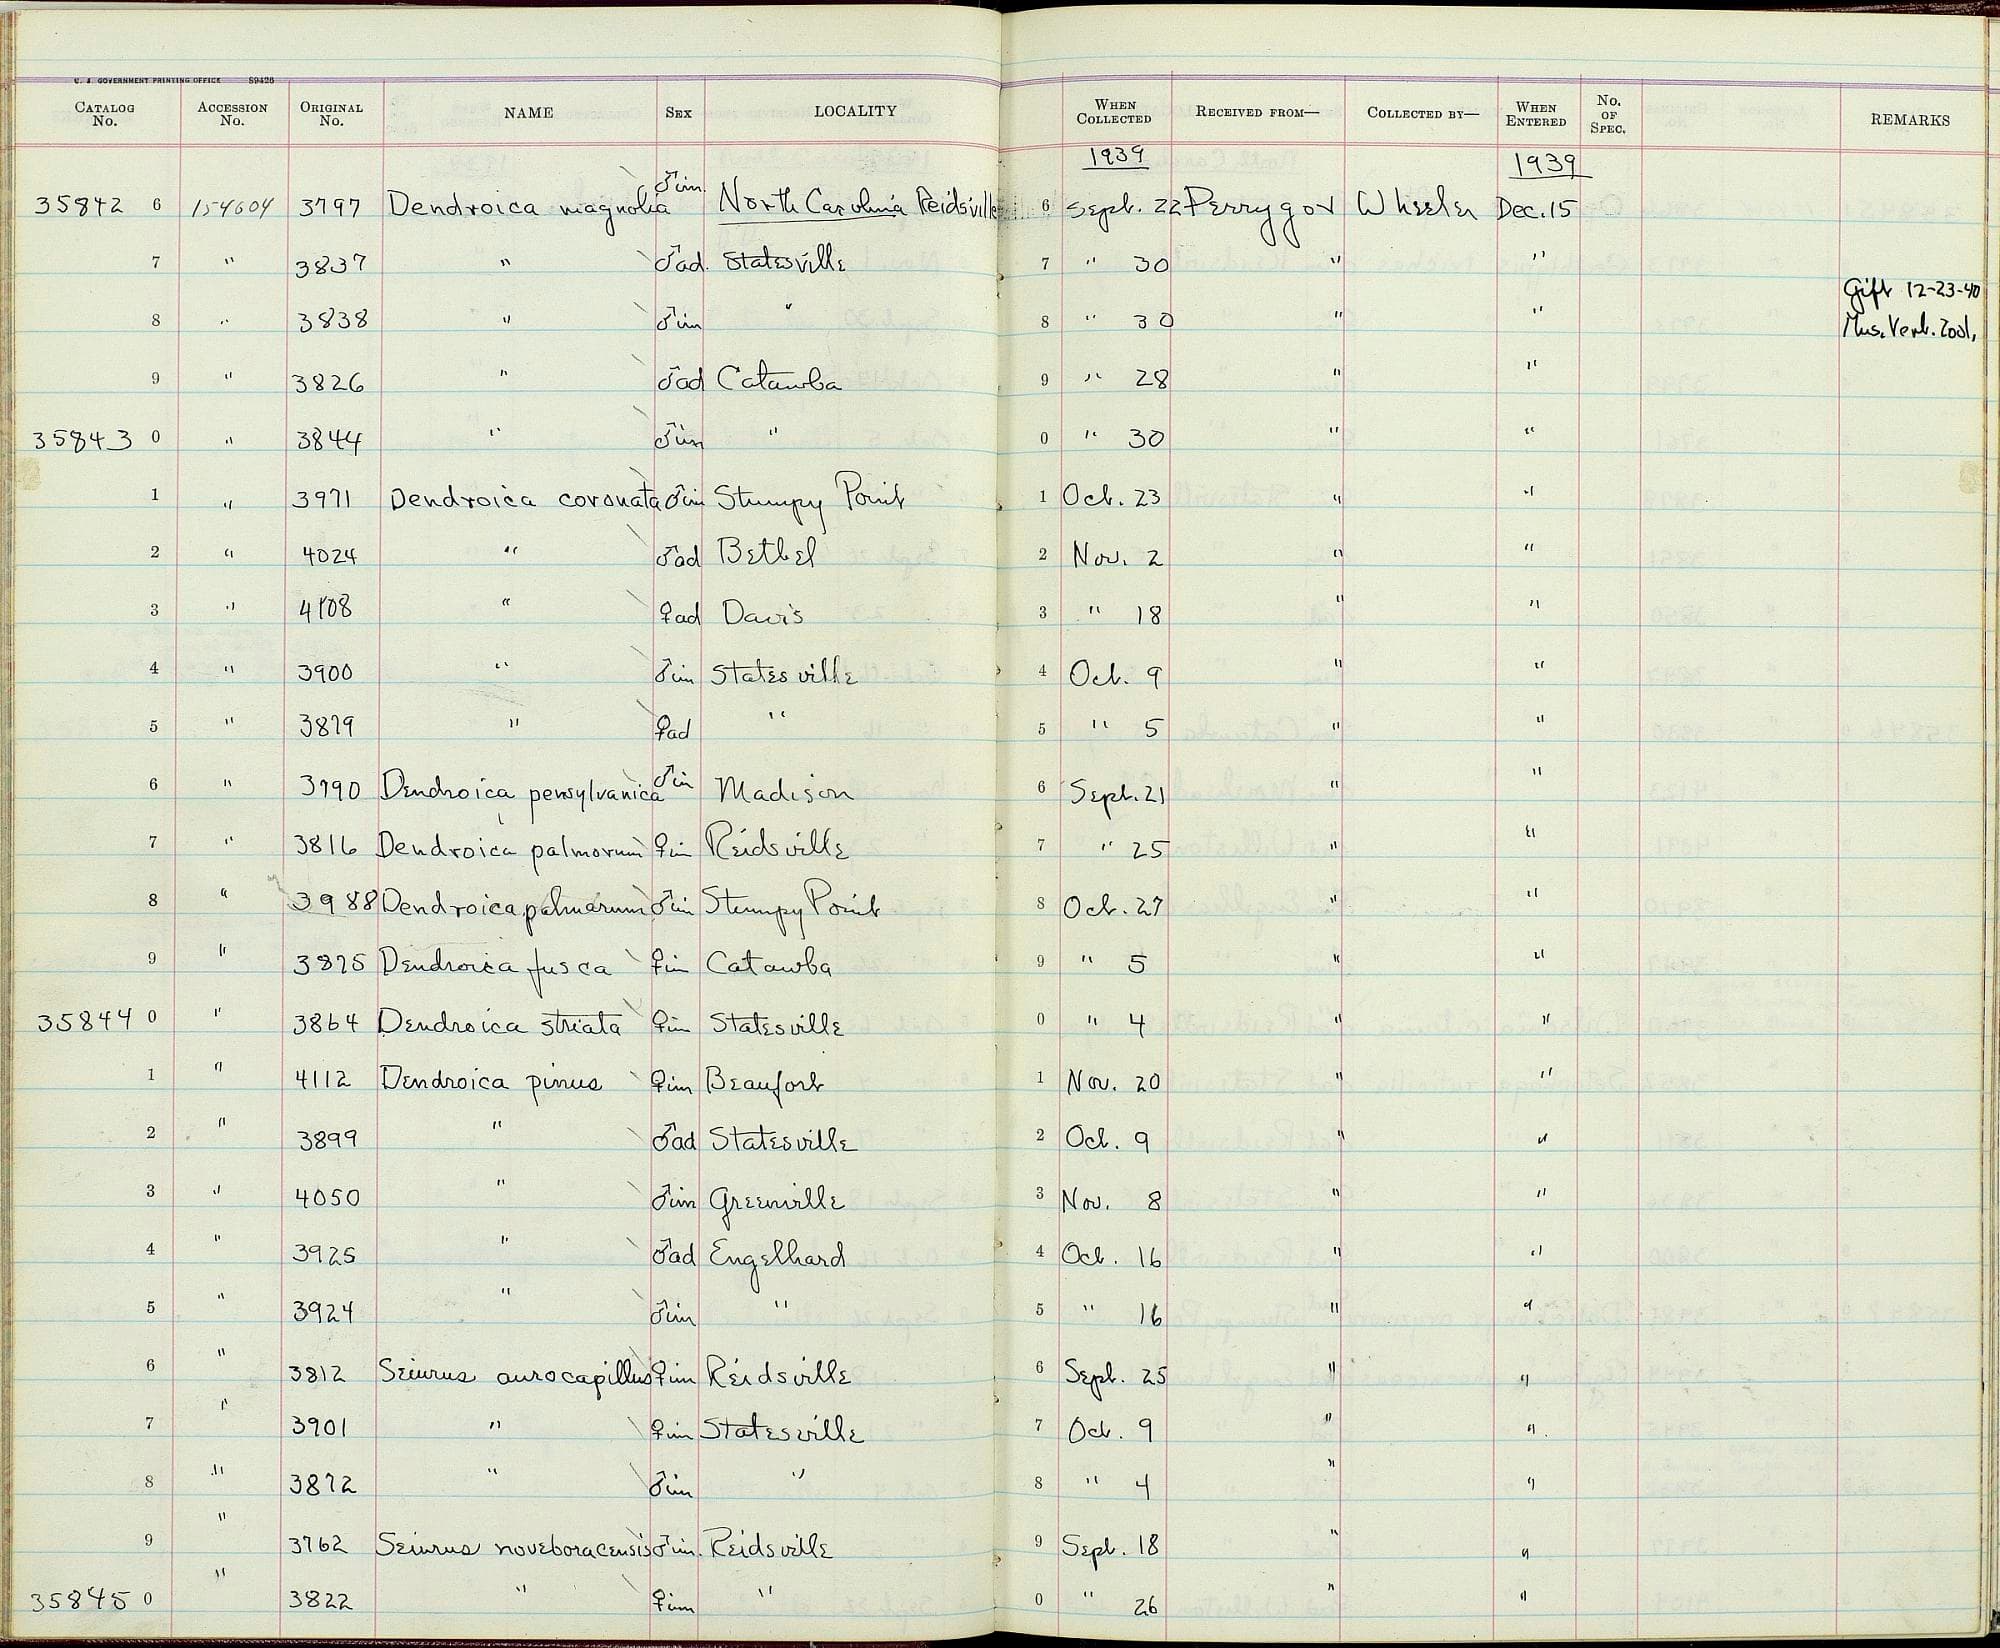 U. S. GOVERNMENT PRINTING OFFICE 89426
CATALOG No. ACCESSION No. ORIGINAL No. NAME SEX LOCALITY WHEN COLLECTED RECEIVED FROM— COLLECTED BY— WHEN ENTERED No. OF SPEC. REMARKS
1939 1939
35842 6 154604 3797 Dendroica magnolia ♂im. North Carolina Reidsville 6 Sept. 22 Perrygo & Wheeler Dec. 15
7 " 3837 " ♂ad. Statesville 7 " 30 " "
Gift 12-23-40
8 " 3838 " ♂im " 8 " 30 " " Mus. Vert. Zool.
9 " 3826 " ♂ad Catawba 9 " 28 " "
35843 0 " 3844 " ♂im " 0 " 30 " "
1 " 3971 Dendroica coronata ♂im Stumpy Point 1 Oct. 23 " "
2 " 4024 " ♂ad Bethel 2 Nov. 2 " "
3 " 4108 " ♀ad Davis 3 " 18 " "
4 " 3900 " ♂im Statesville 4 Oct. 9 " "
5 " 3879 " ♀ad " 5 " 5 " "
6 " 3790 Dendroica pensylvanica ♂im Madison 6 Sept. 21 " "
7 " 3816 Dendroica palmorum ♀im Reidsville 7 " 25 " "
8 " 3988 Dendroica palmarum ♂im Stumpy Point 8 Oct. 27 " "
9 " 3875 Dendroica fusca ♀im Catawba 9 " 5 " "
35844 0 " 3864 Dendroica striata ♀im Statesville 0 " 4 " "
1 " 4112 Dendroica pinus ♀im Beaufort 1 Nov. 20 " "
2 " 3899 " ♂ad Statesville 2 Oct. 9 " "
3 " 4050 " ♂im Greenville 3 Nov. 8 " "
4 " 3925 " ♂ad Engelhard 4 Oct. 16 " "
5 " 3924 " ♂im " 5 " 16 " "
6 " 3812 Seiurus aurocapillus ♀im Reidsville 6 Sept. 25 " "
7 " 3901 " ♀im Statesville 7 Oct. 9 " "
8 " 3872 " ♂im " 8 " 4 " "
9 " 3762 Seiurus noveboracensis ♂im. Reidsville 9 Sept. 18 " "
35845 0 " 3822 " ♀im " 0 " 26 " "